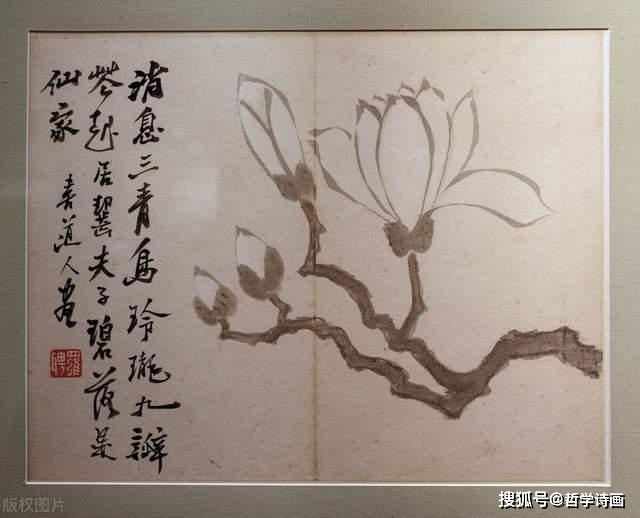 消息三青鳥玲瓏九瓣
花起居夫子碧落是
仙家
道人畫
羅聘
版权图片
搜狐号@哲学诗画